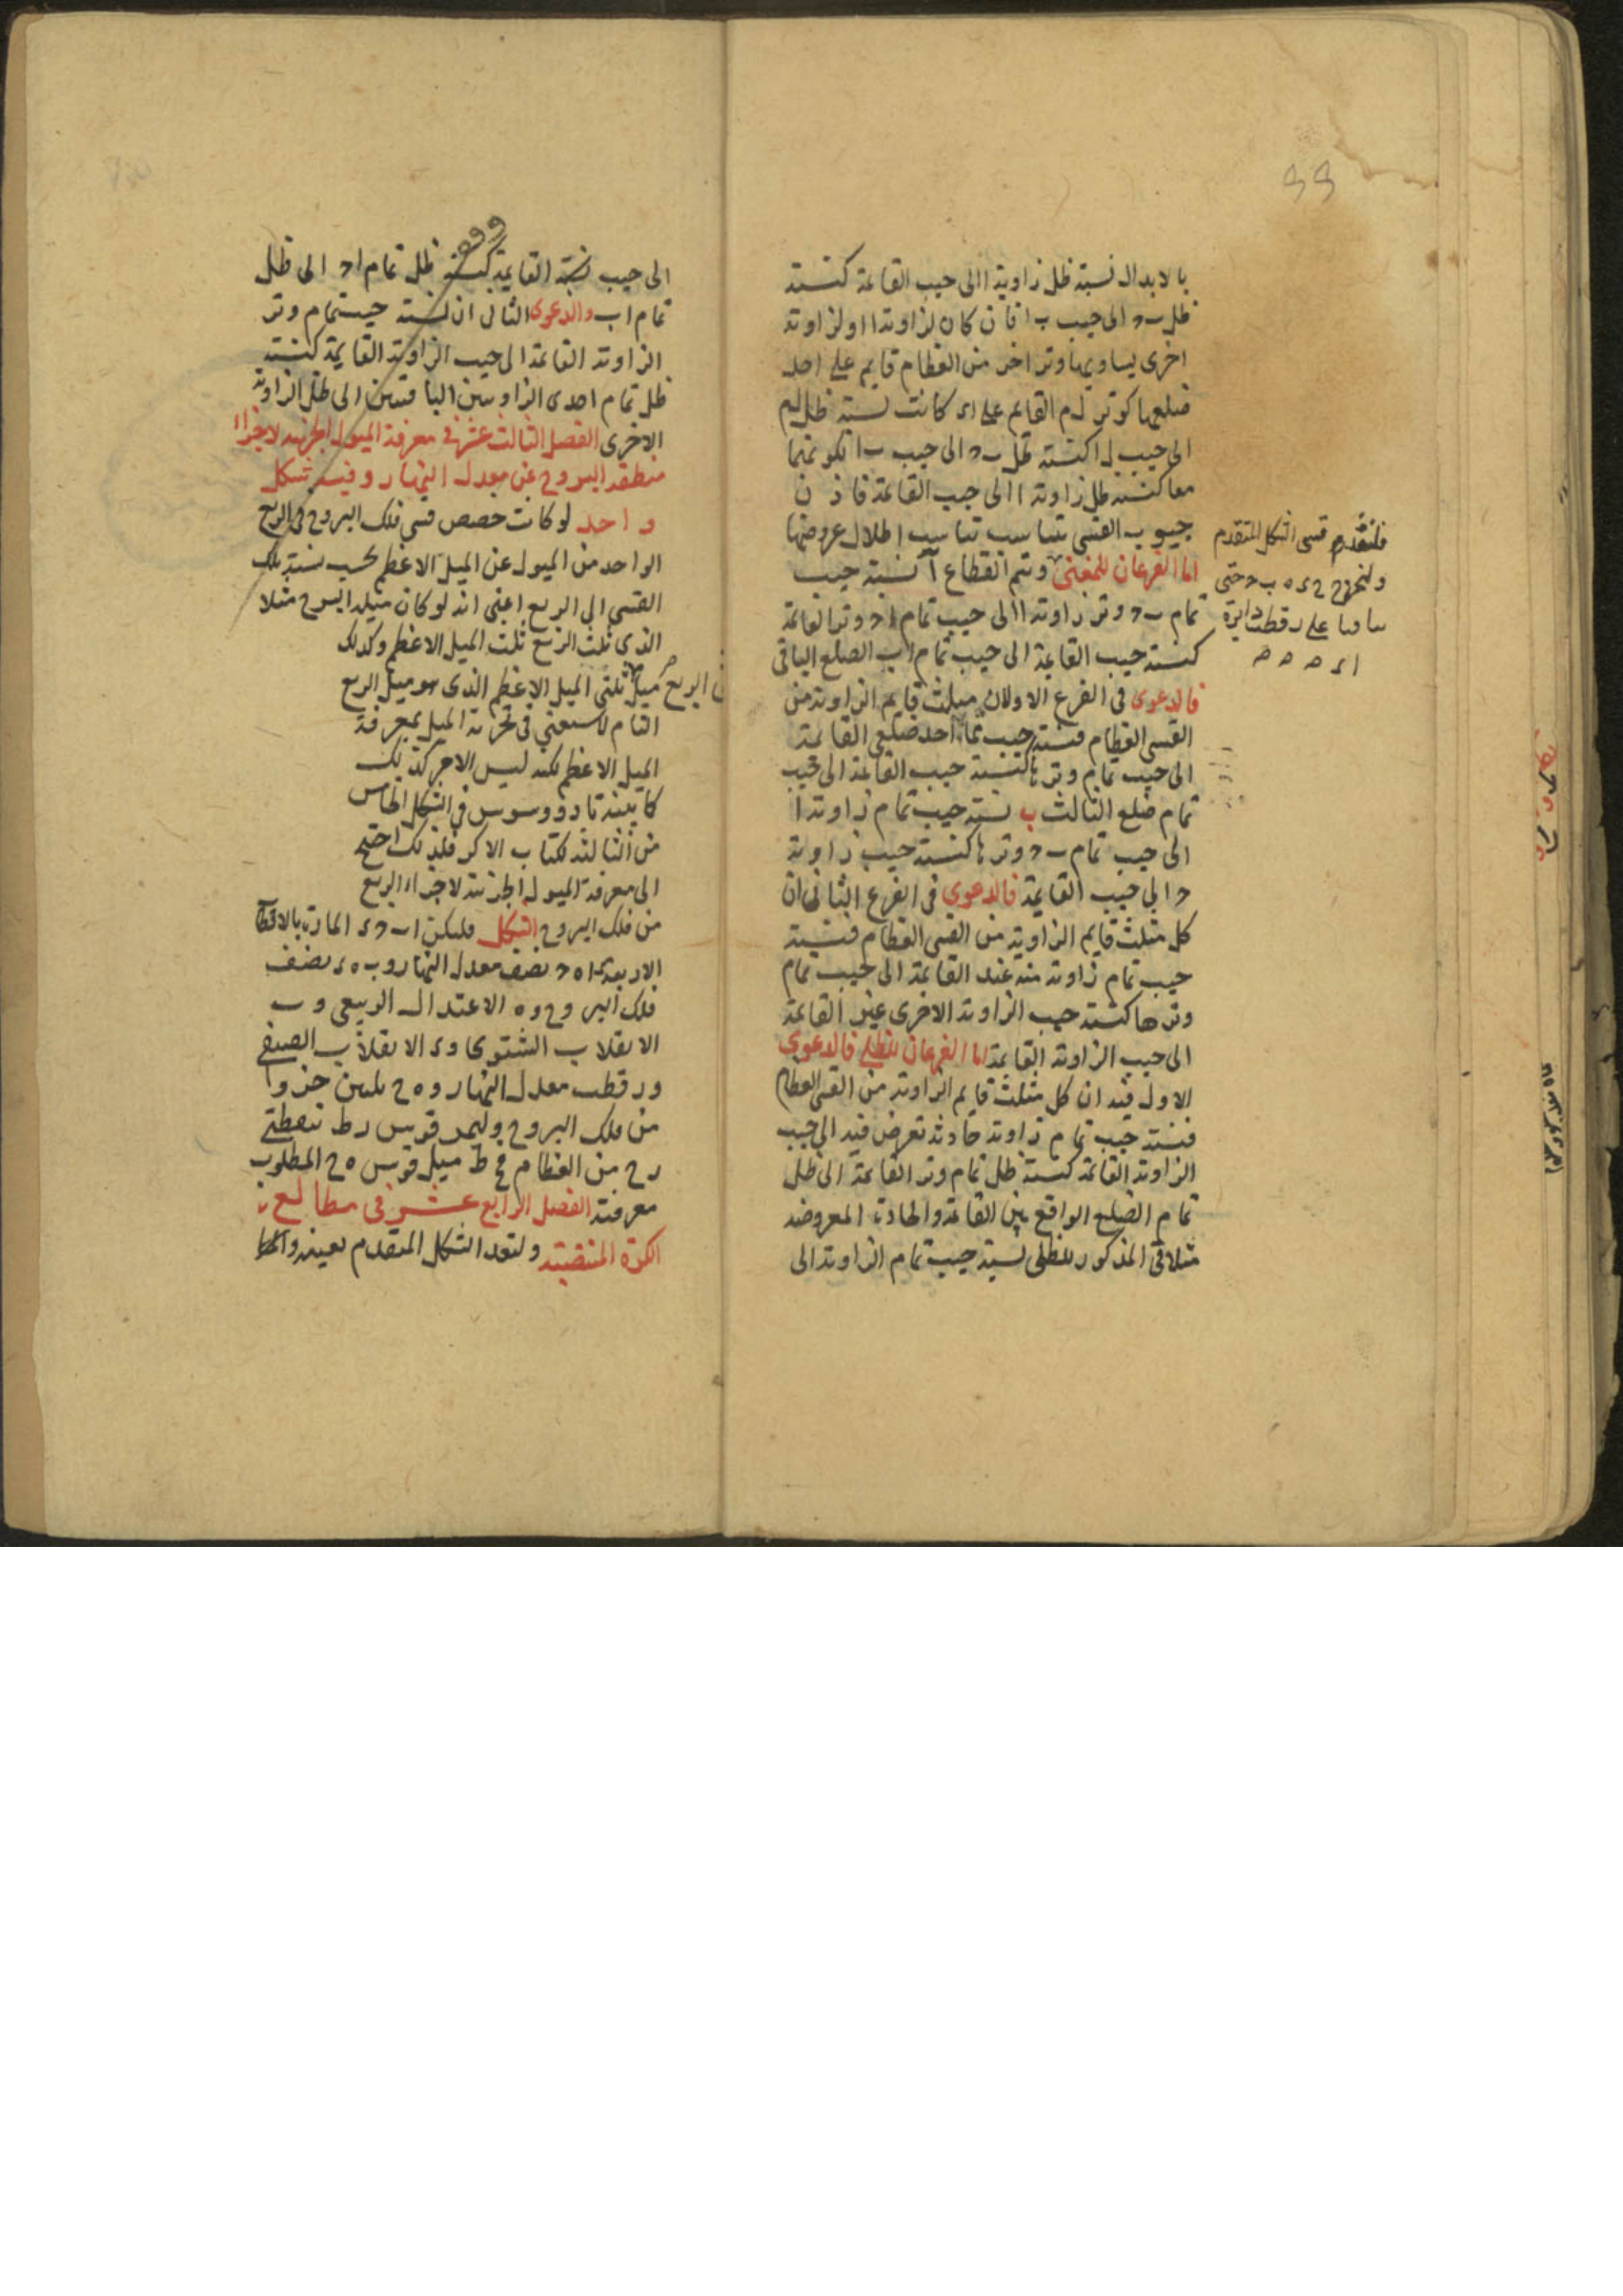 بالابدال نسبة ظل زاوية ا الى جيب القائمة كنسبة
ظل ب د الى جيب ب ا فان كان لزاوية ا او لزاوية
اخرى يساويها وتر اخر من العظام قايم على احد
ضلعيها كوتر ل م القايم على ا ى كانت نسبة ظل ل م
الى جيب ل ا كنسبة ظل ب د الى جيب ب ا لكونهما
معا كنسبة ظل زاوية ا الى جيب القائمة فاذن
جيوب القسى تتناسب تناسب اظلال عروضها
اما الفرعان للمغنى ونتم القطاع آ نسبة جيب
تمام ب د وتر زاوية ا الى جيب تمام ا د وتر القائمة
كنسبة جيب القائمة الى جيب تمام ا ب الضلع الباقى
فالدعوى فى الفرع الاول ان مثلث قايم الزاوية من
القسى العظام فنسبة جيب تمام احد ضلعى القائمة
الى جيب تمام وترها كنسبة جيب القائمة الى جيب
تمام ضلع الثالث ب نسبة جيب تمام زاوية ا
الى جيب تمام ب د وترها كنسبة جيب زاوية
د الى جيب القائمة فالدعوى فى الفرع الثانى ان
كل مثلث قايم الزاوية من القسى العظام فنسبة
جيب تمام زاوية منه عند القائمة الى جيب تمام
وترها كنسبة جيب الزاوية الاخرى غير القائمة
الى جيب الزاوية القائمة اما الفرعان للظلى فالدعوى
الاول فيه ان كل مثلث قايم الزاوية من القسى العظام
فنسبة جيب تمام زاوية حادثة تعرض فيه الى جيب
الزاوية القائمة كنسبة ظل تمام وتر القائمة الى ظل
تمام الضلع الواقع بين القائمة والحادة المعروضه
مثلا فى المذكور للظلى نسبة جيب تمام الزاوية الى
قسى الشكل المتقدم
على قطب دايرة
الى جيب القايمة كنسبة ظل تمام ا د الى ظل
تمام ا ب والدعوى الثانى ان نسبة جيب تمام وتر
الزاوية القائمة الى جيب الزاوية القايمة كنسبة
ظل تمام احدى الزاويتين الباقيتين الى ظل الزاوية
الاخرى الفصل الثالث عشر فى معرفة الميول الجزئية لاجزاء
منطقة البروج عن معدل النهار وفيه شكل
واحد لو كانت حصص قسى فلك البروج فى الربع
الواحد من الميول عن الميل الاعظم بحسب نسبة تلك
القسى الى الربع اعنى انه لو كان ميل البرج مثلا
الذى ثلث الربع ثلث الميل الاعظم وكذلك
ميل ثلثى الميل الاعظم الذى هو ميل الربع
التام لاستغنى فى تجزية الميل بمعرفة
الميل الاعظم لكنه ليس الامر كذلك
كما بينه ثاودوسيوس فى الشكل الخامس
من الثالثة لكتاب الاكر فلذلك احتيج
الى معرفة الميول الجزئية لاجزاء الربع
من فلك البروج الشكل فليكن ا ب د ى المارة بالاقطاب
الاربعة و ا ه د نصف معدل النهار و ب ه ى نصف
فلك البروج و ه الاعتدال الربيعى و ب
الانقلاب الشتوى و ى الانقلاب الصيفى
و ر قطب معدل النهار و ه ح ثلثين جزوا
من فلك البروج وليمر قوس ر ط بنقطتى
ر ح من العظام فح ط ميل قوس ه ح المطلوب
معرفته الفصل الرابع عشر فى مطالع
الكرة المنتصبة ولنعد الشكل المتقدم بعينه